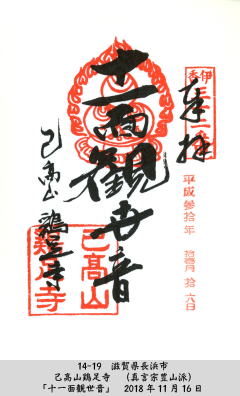 奉拝
平成参拾年 拾壱月 拾六日
十一面観世音
己高山 鶏足寺
己高山
鶏足寺
14-19 滋賀県長浜市
己高山鶏足寺 (真言宗豊山派)
「十一面観世音」 2018年11月16日